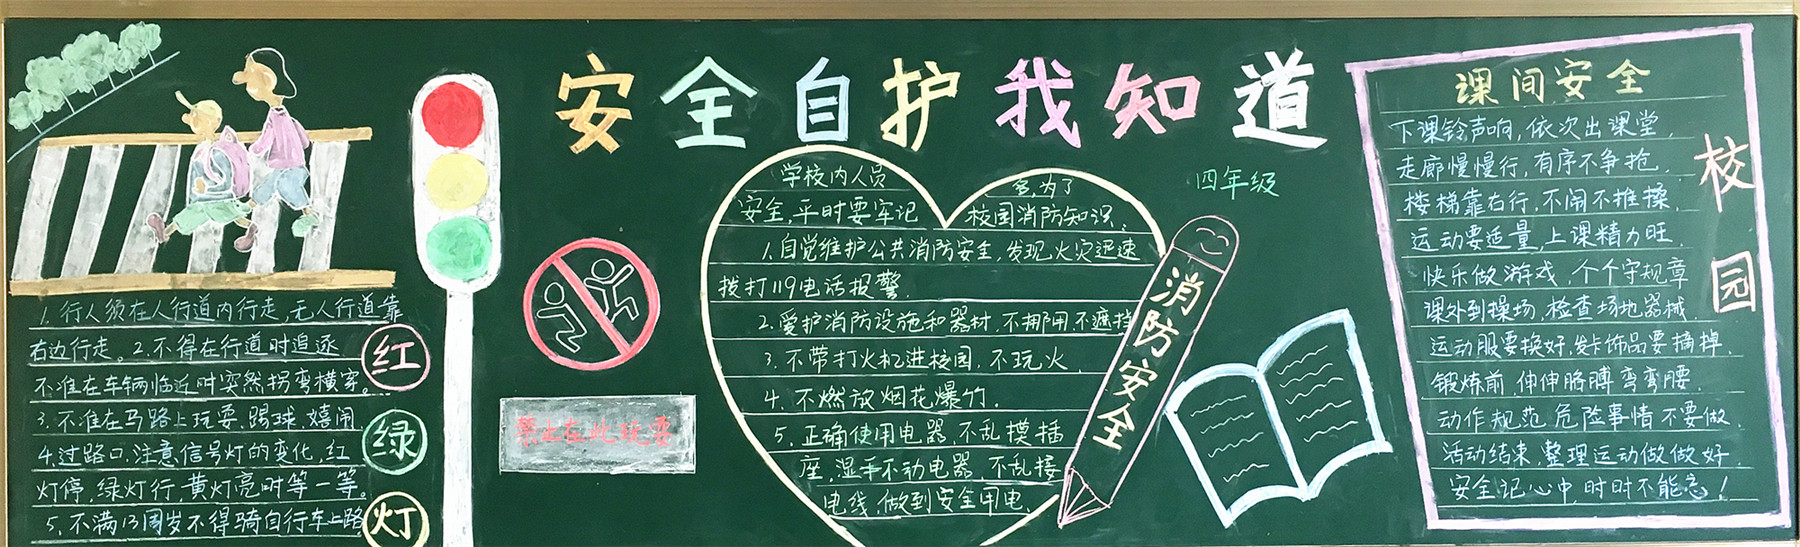 安全自护我知道
四年级
1.行人须在人行道内行走,无人行道靠
右边行走。2.不得在行道时追逐
不准在车辆临近时突然拐弯横穿。
3.不准在马路上玩耍、踢球、嬉闹
4.过路口,注意信号灯的变化,红
灯停,绿灯行,黄灯亮时等一等。
5.不满13周岁不得骑自行车上路
红
绿
灯
禁止在此玩耍
学校内人员
多,为了
安全,平时要牢记
校园消防知识、
1.自觉维护公共消防安全,发现火灾迅速
拨打119电话报警.
2.爱护消防设施和器材,不挪用,不遮挡
3.不带打火机进校园,不玩火.
4.不燃放烟花爆竹.
5.正确使用电器,不乱摸插
座,湿手不动电器,不乱接
电线,做到安全用电.
消防安全
课间安全
下课铃声响,依次出课堂,
走廊慢慢行,有序不争抢.
楼梯靠右行,不闹不推搡.
运动要适量,上课精力旺.
快乐做游戏,个个守规章
课外到操场,检查场地器械.
运动服要换好,发卡饰品要摘掉.
锻炼前,伸伸胳膊弯弯腰.
动作规范,危险事情不要做.
活动结束,整理运动做做好.
安全记心中,时时不能忘!
校园